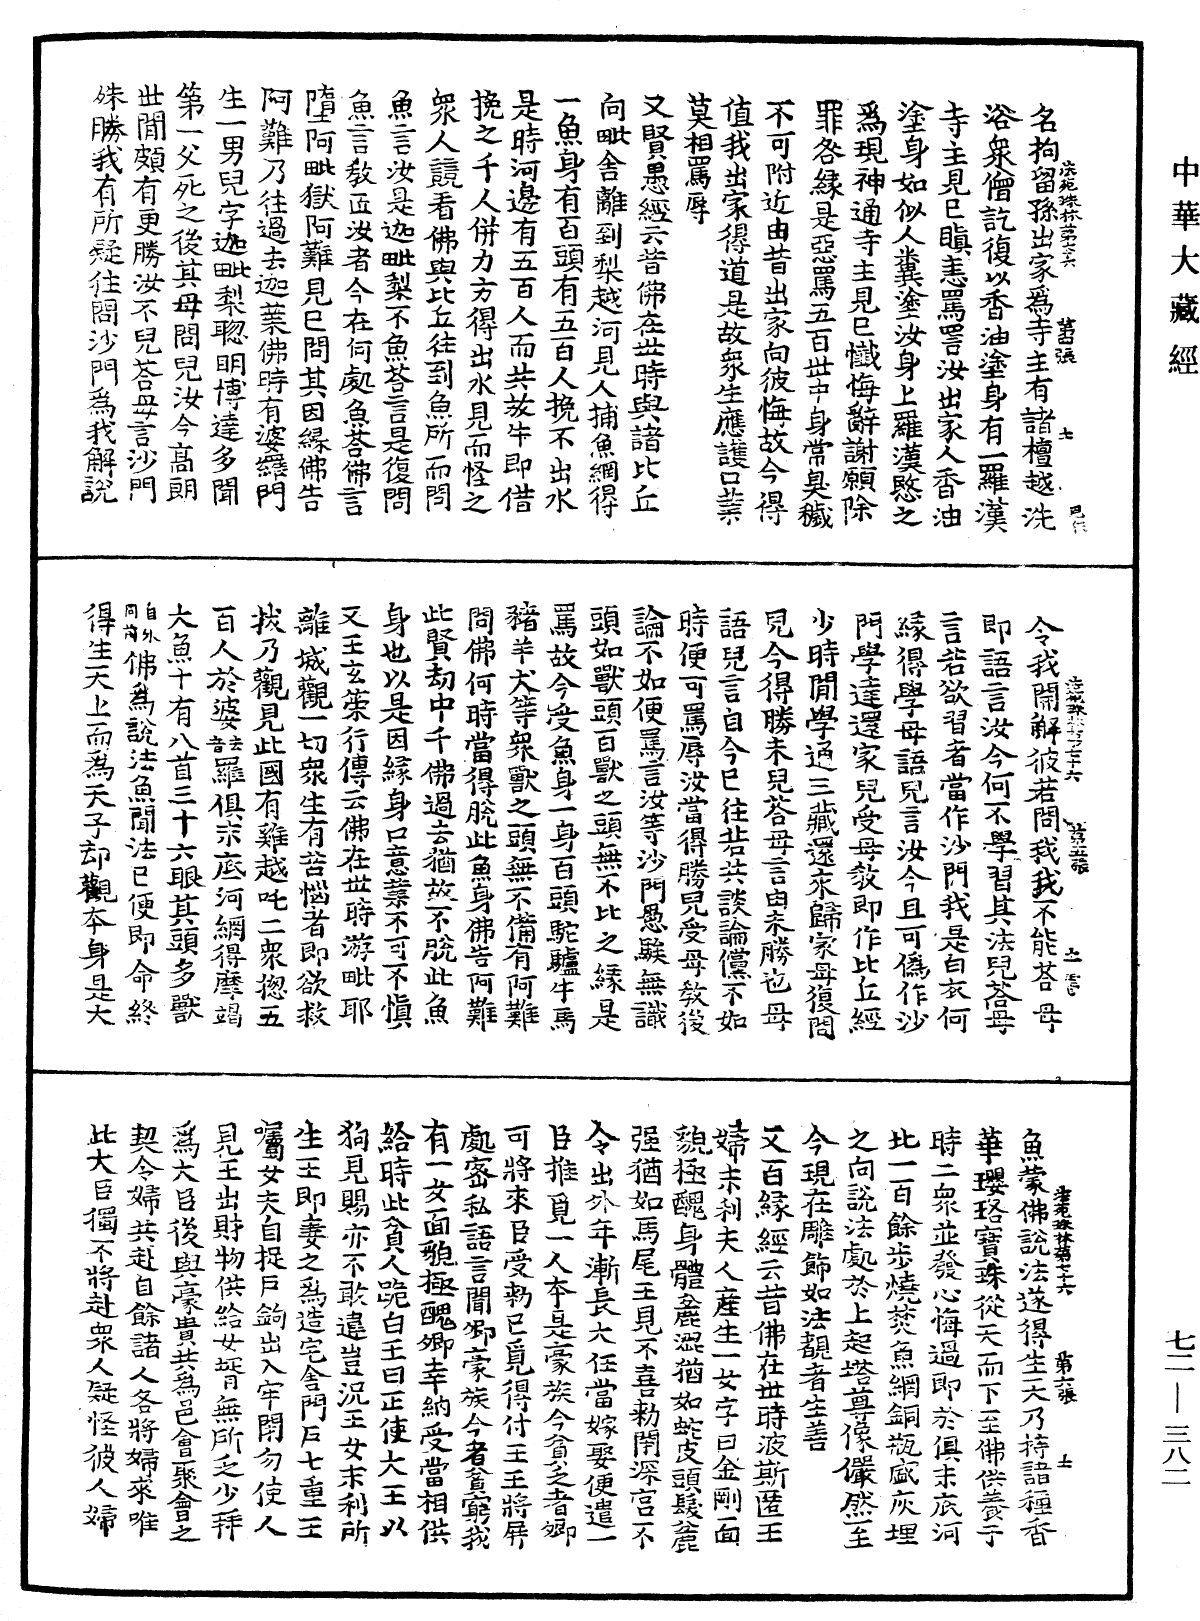 中華大藏經
法苑珠林第七十六 第四張 七
名拘留孫出家為寺主有諸檀越洗
浴衆僧訖復以香油塗身有一羅漢
寺主見已瞋恚罵詈汝出家人香油
塗身如似人糞塗汝身上羅漢愍之
為現神通寺主見已懺悔辭謝願除
罪咎緣是惡罵五百世中身常臭穢
不可附近由昔出家向彼悔故今得
值我出家得道是故衆生應護口業
莫相罵辱
又賢愚經云昔佛在世時與諸比丘
向毗舍離到梨越河見人捕魚網得
一魚身有百頭有五百人挽不出水
是時河邊有五百人而共放牛即借
挽之千人併力方得出水見而怪之
衆人競看佛與比丘往到魚所而問
魚言汝是迦毗梨不魚荅言是復問
魚言教匠汝者今在何處魚荅佛言
墮阿毗獄阿難見已問其因緣佛告
阿難乃往過去迦葉佛時有婆羅門
生一男兒字迦毗梨聰明博達多聞
第一父死之後其母問兒汝今高朗
世閒頗有更勝汝不兒荅母言沙門
殊勝我有所疑往問沙門為我解說
法苑珠林第七十六 第五張
令我開解彼若問我我不能荅母
即語言汝今何不學習其法兒荅母
言若欲習者當作沙門我是白衣何
緣得學母語兒言汝今且可偽作沙
門學達還家兒受母教即作比丘經
少時間學通三藏還來歸家母復問
兒今得勝未兒荅母言由未勝也母
語兒言自今已往若共談論儻不如
時便可罵辱汝當得勝兒受母教後
論不如便罵言汝等沙門愚騃無識
頭如獸頭百獸之頭無不比之緣是
罵故今受魚身一身百頭駝驢牛馬
豬羊犬等衆獸之頭無不備有阿難
問佛何時當得脫此魚身佛告阿難
此賢劫中千佛過去猶故不脫此魚
身也以是因緣身口意業不可不慎
又王玄策行傳云佛在世時遊毗耶
離城觀一切衆生有苦惱者即欲救
拔乃觀見此國有雞越吒二衆揔五
百人於婆去音羅俱末底河網得摩竭
大魚十有八首三十六眼其頭多獸
自外同前佛為說法魚聞法已便即命終
得生天上而為天子却觀本身是大
法苑珠林第七十六 第六張
魚蒙佛說法遂得生天乃持諸種香
華瓔珞寶珠從天而下至佛供養于
時二衆並發心悔過即於俱末底河
北一百餘步燒焚魚網銅瓶盛灰埋
之向說法處於上起塔尊像儼然至
今現在雕飾如法覩者生善
又百緣經云昔佛在世時波斯匿王
婦末利夫人產生一女字曰金剛面
貌極醜身體麁澀猶如蛇皮頭髮麁
强猶如馬尾王見不喜勑閉深宮不
令出外年漸長大任當嫁娶便遣一
臣推覓一人本是豪族今貧乏者卿
可將來臣受勑已覓得付王王將屏
處密私語言聞卿豪族今者貧窮我
有一女面貌極醜卿幸納受當相供
給時此貧人跪白王曰正使大王以
狗見賜亦不敢違豈況王女末利所
生王即妻之為造宅舍門戶七重王
囑女夫自捉戶鉤出入牢閉勿使人
見王出財物供給女壻無所乏少拜
為大臣後與豪貴共為邑會聚會之
契令婦共赴自餘諸人各將婦來唯
此大臣獨不將赴衆人疑怪彼人婦
七二—三八二